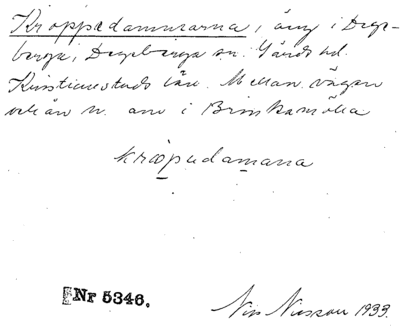 Kroppedammarna, äng i Dege-
berga, Degeberga sn. Gärds hd.
Kristianstads län. Mellan vägen
och ån n. om i Brinkamölla
kroopudamana
Nr 5346.
Nils Nilsson 1933.